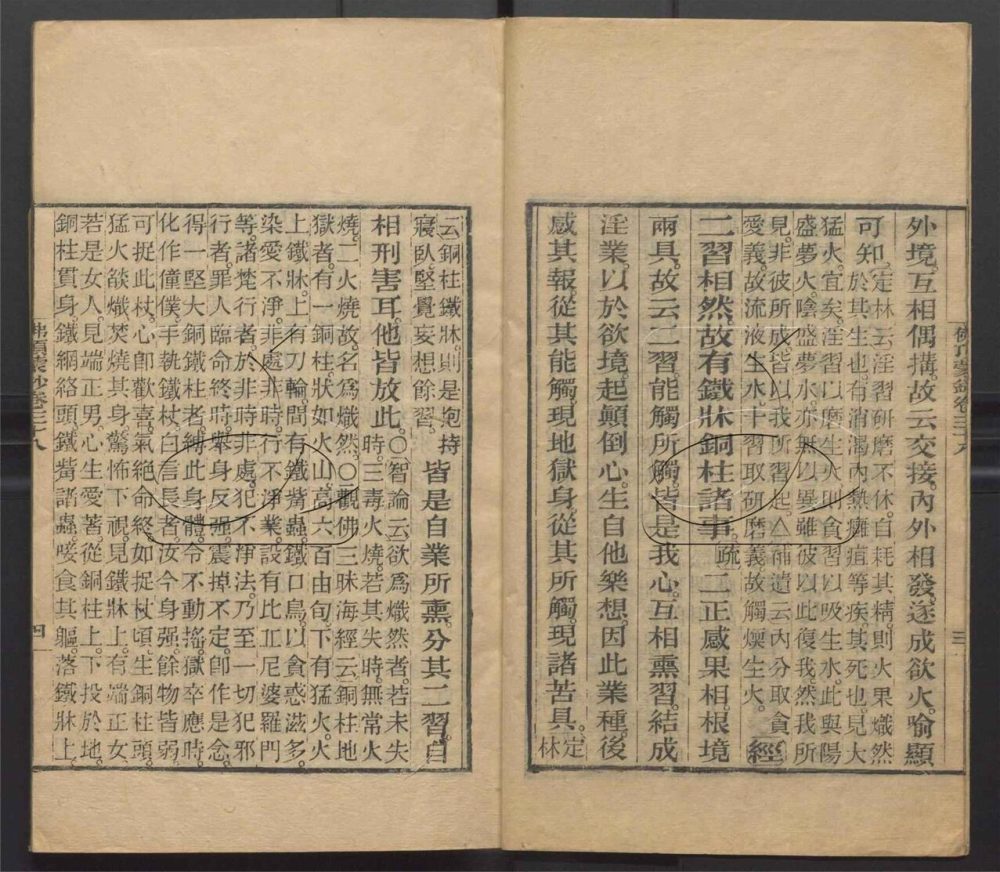 外境互相偶搆故云交接內外相發遂成欲火喻顯
可知。定林云淫習研磨不休自耗其精則火果熾然
於其生也有消渴內熱癰疽等疾其死也見大
猛火宜矣淫習以磨生火則貪習以吸生水此與陽
盛夢火陰盛夢水亦無以異雖彼以此復我然我所
見非彼所成皆以我所習起△補遺云內分取貪
愛義故流液生水十習取研磨義故觸煗生火。經
二習相然故有鐵牀銅柱諸事。疏二正感果相根境
兩具故云二習能觸所觸皆是我心互相熏習結成
淫業以於欲境起顛倒心生自他樂想因此業種後
感其報從其能觸現地獄身從其所觸現諸苦具。定林
云銅柱鐵牀則是抱持
寢臥堅覺妄想餘習。皆是自業所熏分其二習自
相刑害耳他皆放此。○智論云欲爲熾然者若未失
時三毒火燒若其失時無常火
燒二火燒故名爲熾然○觀佛三昧海經云銅柱地
獄者有一銅柱狀如火山高六百由旬下有猛火火
上鐵牀上有刀輪間有鐵觜蟲鐵口鳥以貪惑滋多
染愛不淨非處非時行不淨業設有比丘尼婆羅門
等諸梵行者於非時非處犯不淨法乃至一切犯邪
行者罪人臨命終時舉身反强震掉不定卽作是念
得一堅大銅鐵柱者縛此身體令不動搖獄卒應時
化作僮僕手執鐵杖白言長者汝今身强餘物皆弱
可捉此杖心卽歡喜氣絕命終如捉杖頃生銅柱頭
猛火燄熾焚燒其身驚怖下視見鐵牀上有端正女
若是女人見端正男心生愛著從銅柱上下投於地
銅柱貫身鐵網絡頭鐵觜諸蟲唼食其軀落鐵牀上
四
三